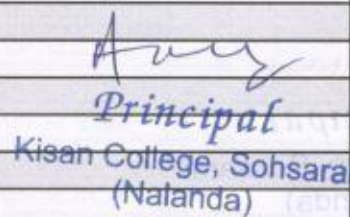 Principal
Kisan College, Sohsara
(Nalanda)